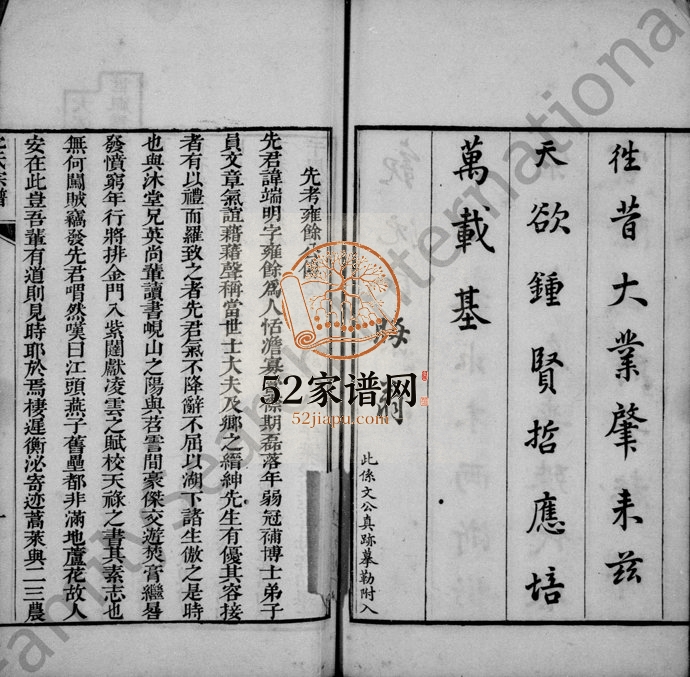 往昔大業肇来茲
天欲鍾賢哲應培
萬載基
此係文公真跡摹勒附入
先考雍餘公傳
先君諱端明字雍餘為人恬澹寡
期磊落年弱冠補博士弟子
員文章氣誼藉藉聲稱當世士大夫及鄉之縉紳先生有優其容接
者有以禮而羅致之者先君氣不降辭不屈以湖下諸生傲之是時
也與沐堂兄英尚輩讀書峴山之陽與苕霅間豪傑交遊焚膏繼晷
發憤窮年行將排金門入紫闥獻凌雲之賦校天祿之書其素志也
無何闖賊竊發先君喟然嘆曰江頭燕子舊壘都非滿地蘆花故人
安在此豈吾輩有道則見時耶於焉棲遲衡泌寄迹蒿萊與二三農
氏宗譜
一
52家谱网
52jiapu.com
Family Search International